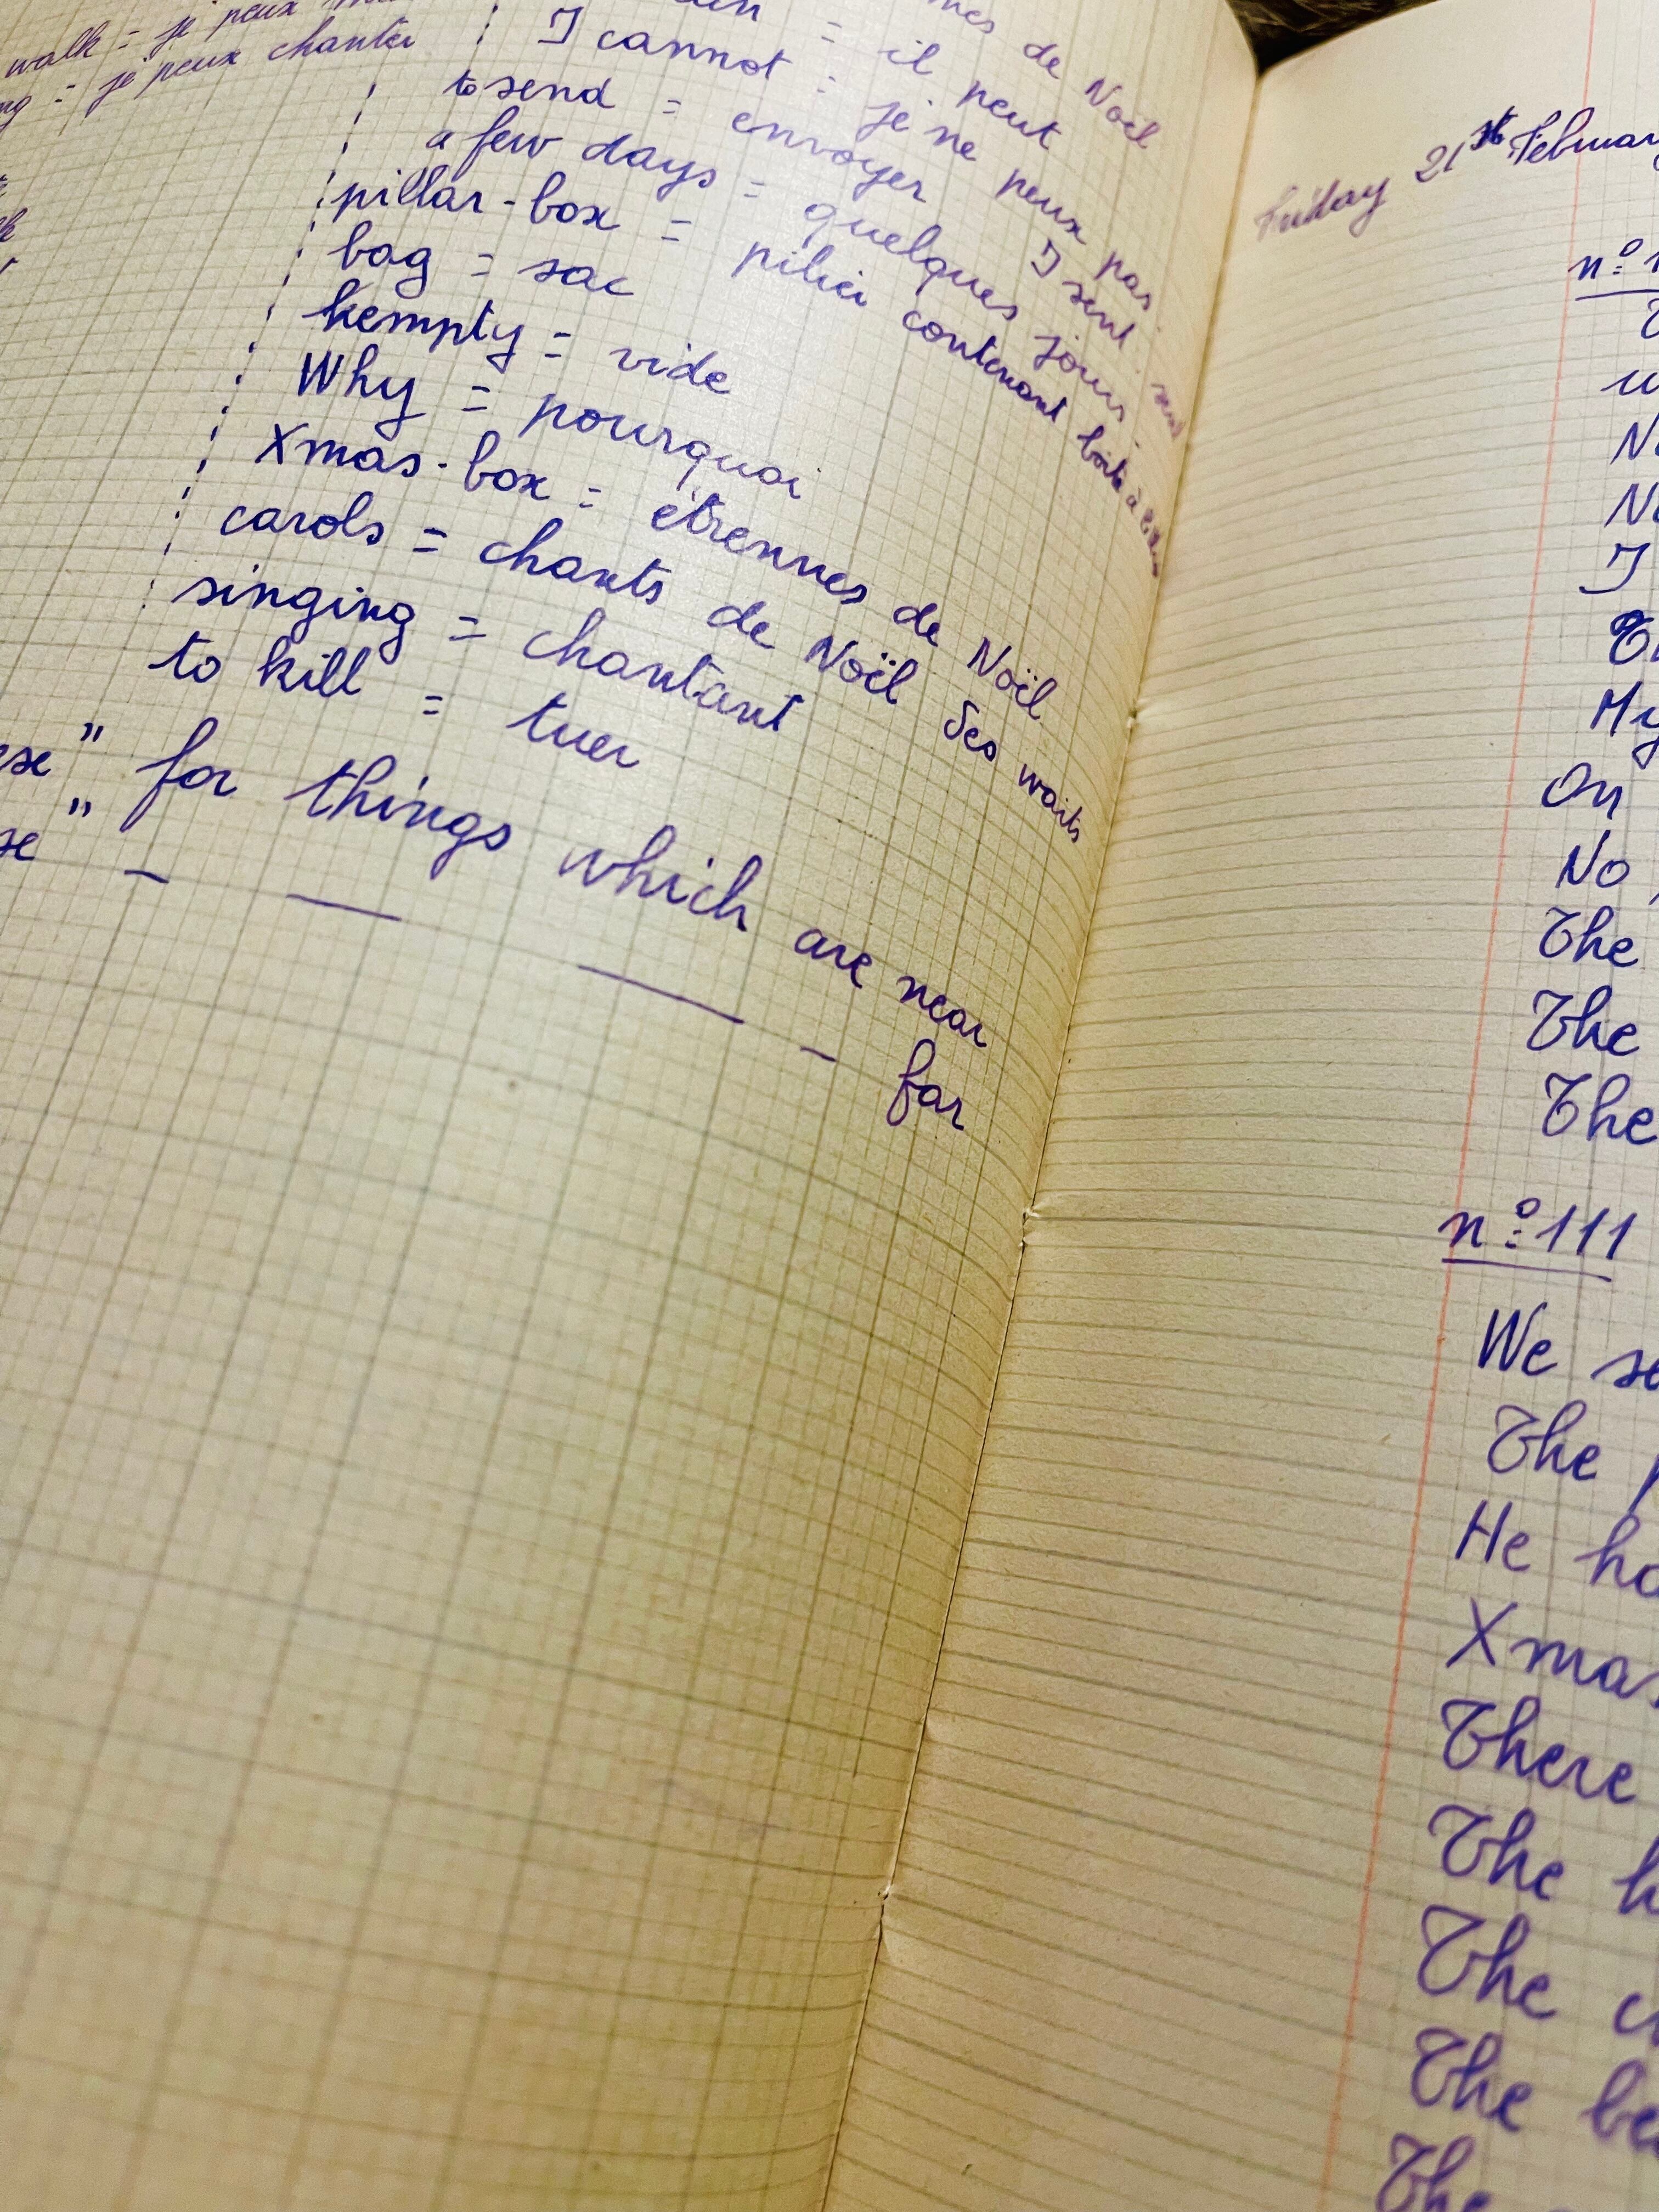 walk = je peux
= je peux chanter
de Noël
= il peut
I cannot = je ne peux pas
to send = envoyer I sent send
a few days = quelques jours
pillar-box = pilier contenant boîte à
bag = sac
kempty = vide
Why = pourquoi
Xmas-box = étrennes de Noël
carols = chants de Noël des waits
singing = chantant
to kill = tuer
" for things which are near
" — — — — far
Friday 21st February
n°
No
I
My
On
No
The
The
The
n° 111
We
The
He
Xmas
There
The
The
The
The